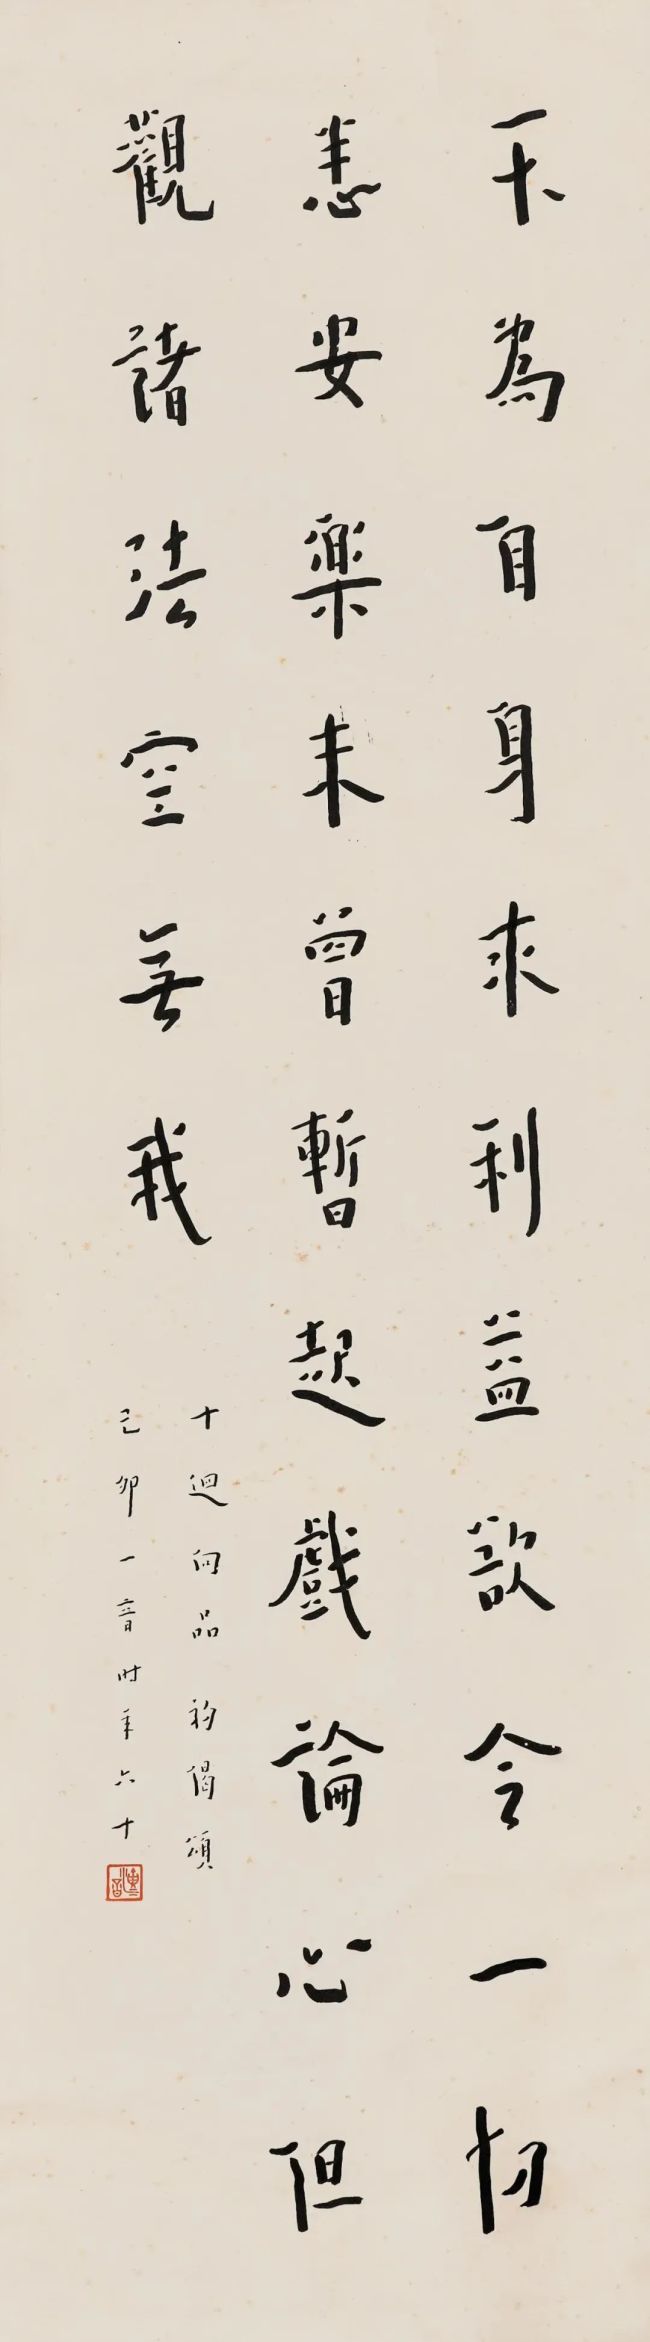 不為自身求利益欲令一切
悉安樂未曾暫起戲論心但
觀諸法空無我
十迴向品初偈頌
己卯一音時年六十